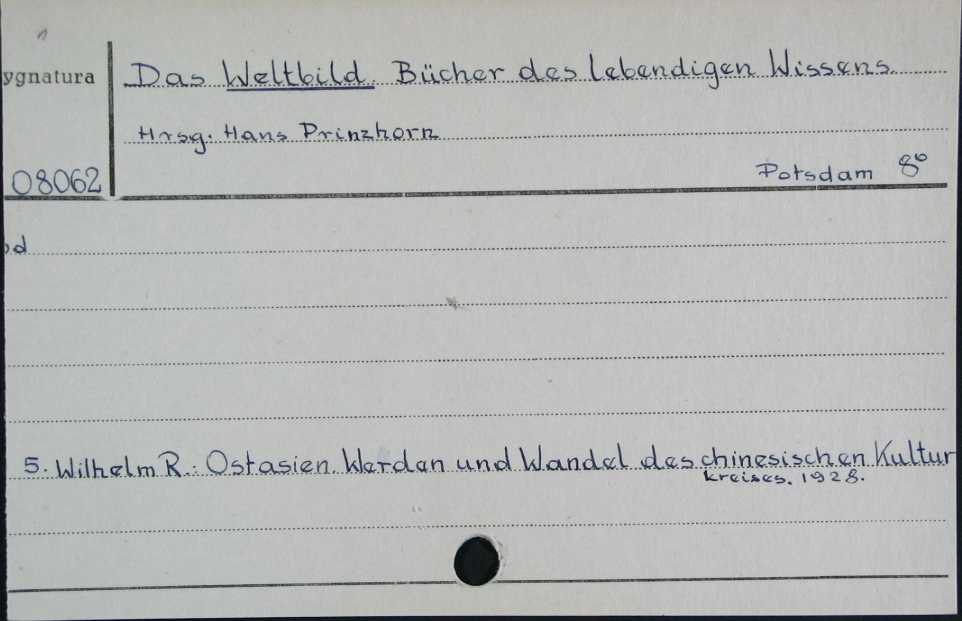 ygnatura
Das Weltbild. Bücher des lebendigen Wissens.
Hrsg. Hans Prinzhorn
08062
Potsdam 8°
od
5. Wilhelm R.: Ostasien. Werden und Wandel des chinesischen Kultur
kreises. 1928.